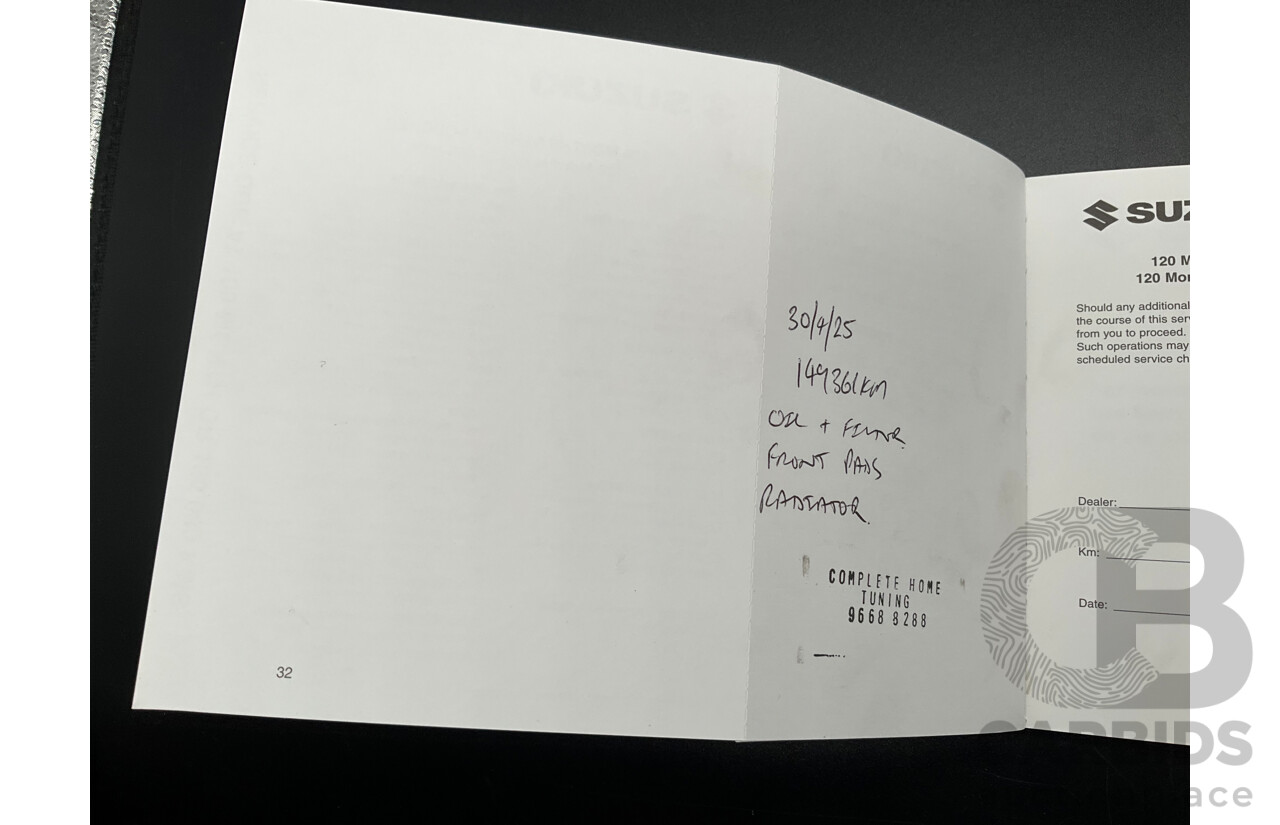 30/4/25
149361km
OIL + FILTER
FRONT PADS
RADIATOR.
COMPLETE HOME
TUNING
9668 8288
32
SUZ
120 M
120 Mon
Should any additional
the course of this serv
from you to proceed.
Such operations may
scheduled service ch
Dealer:
Km:
Date:
CB
CARBIDS
ace